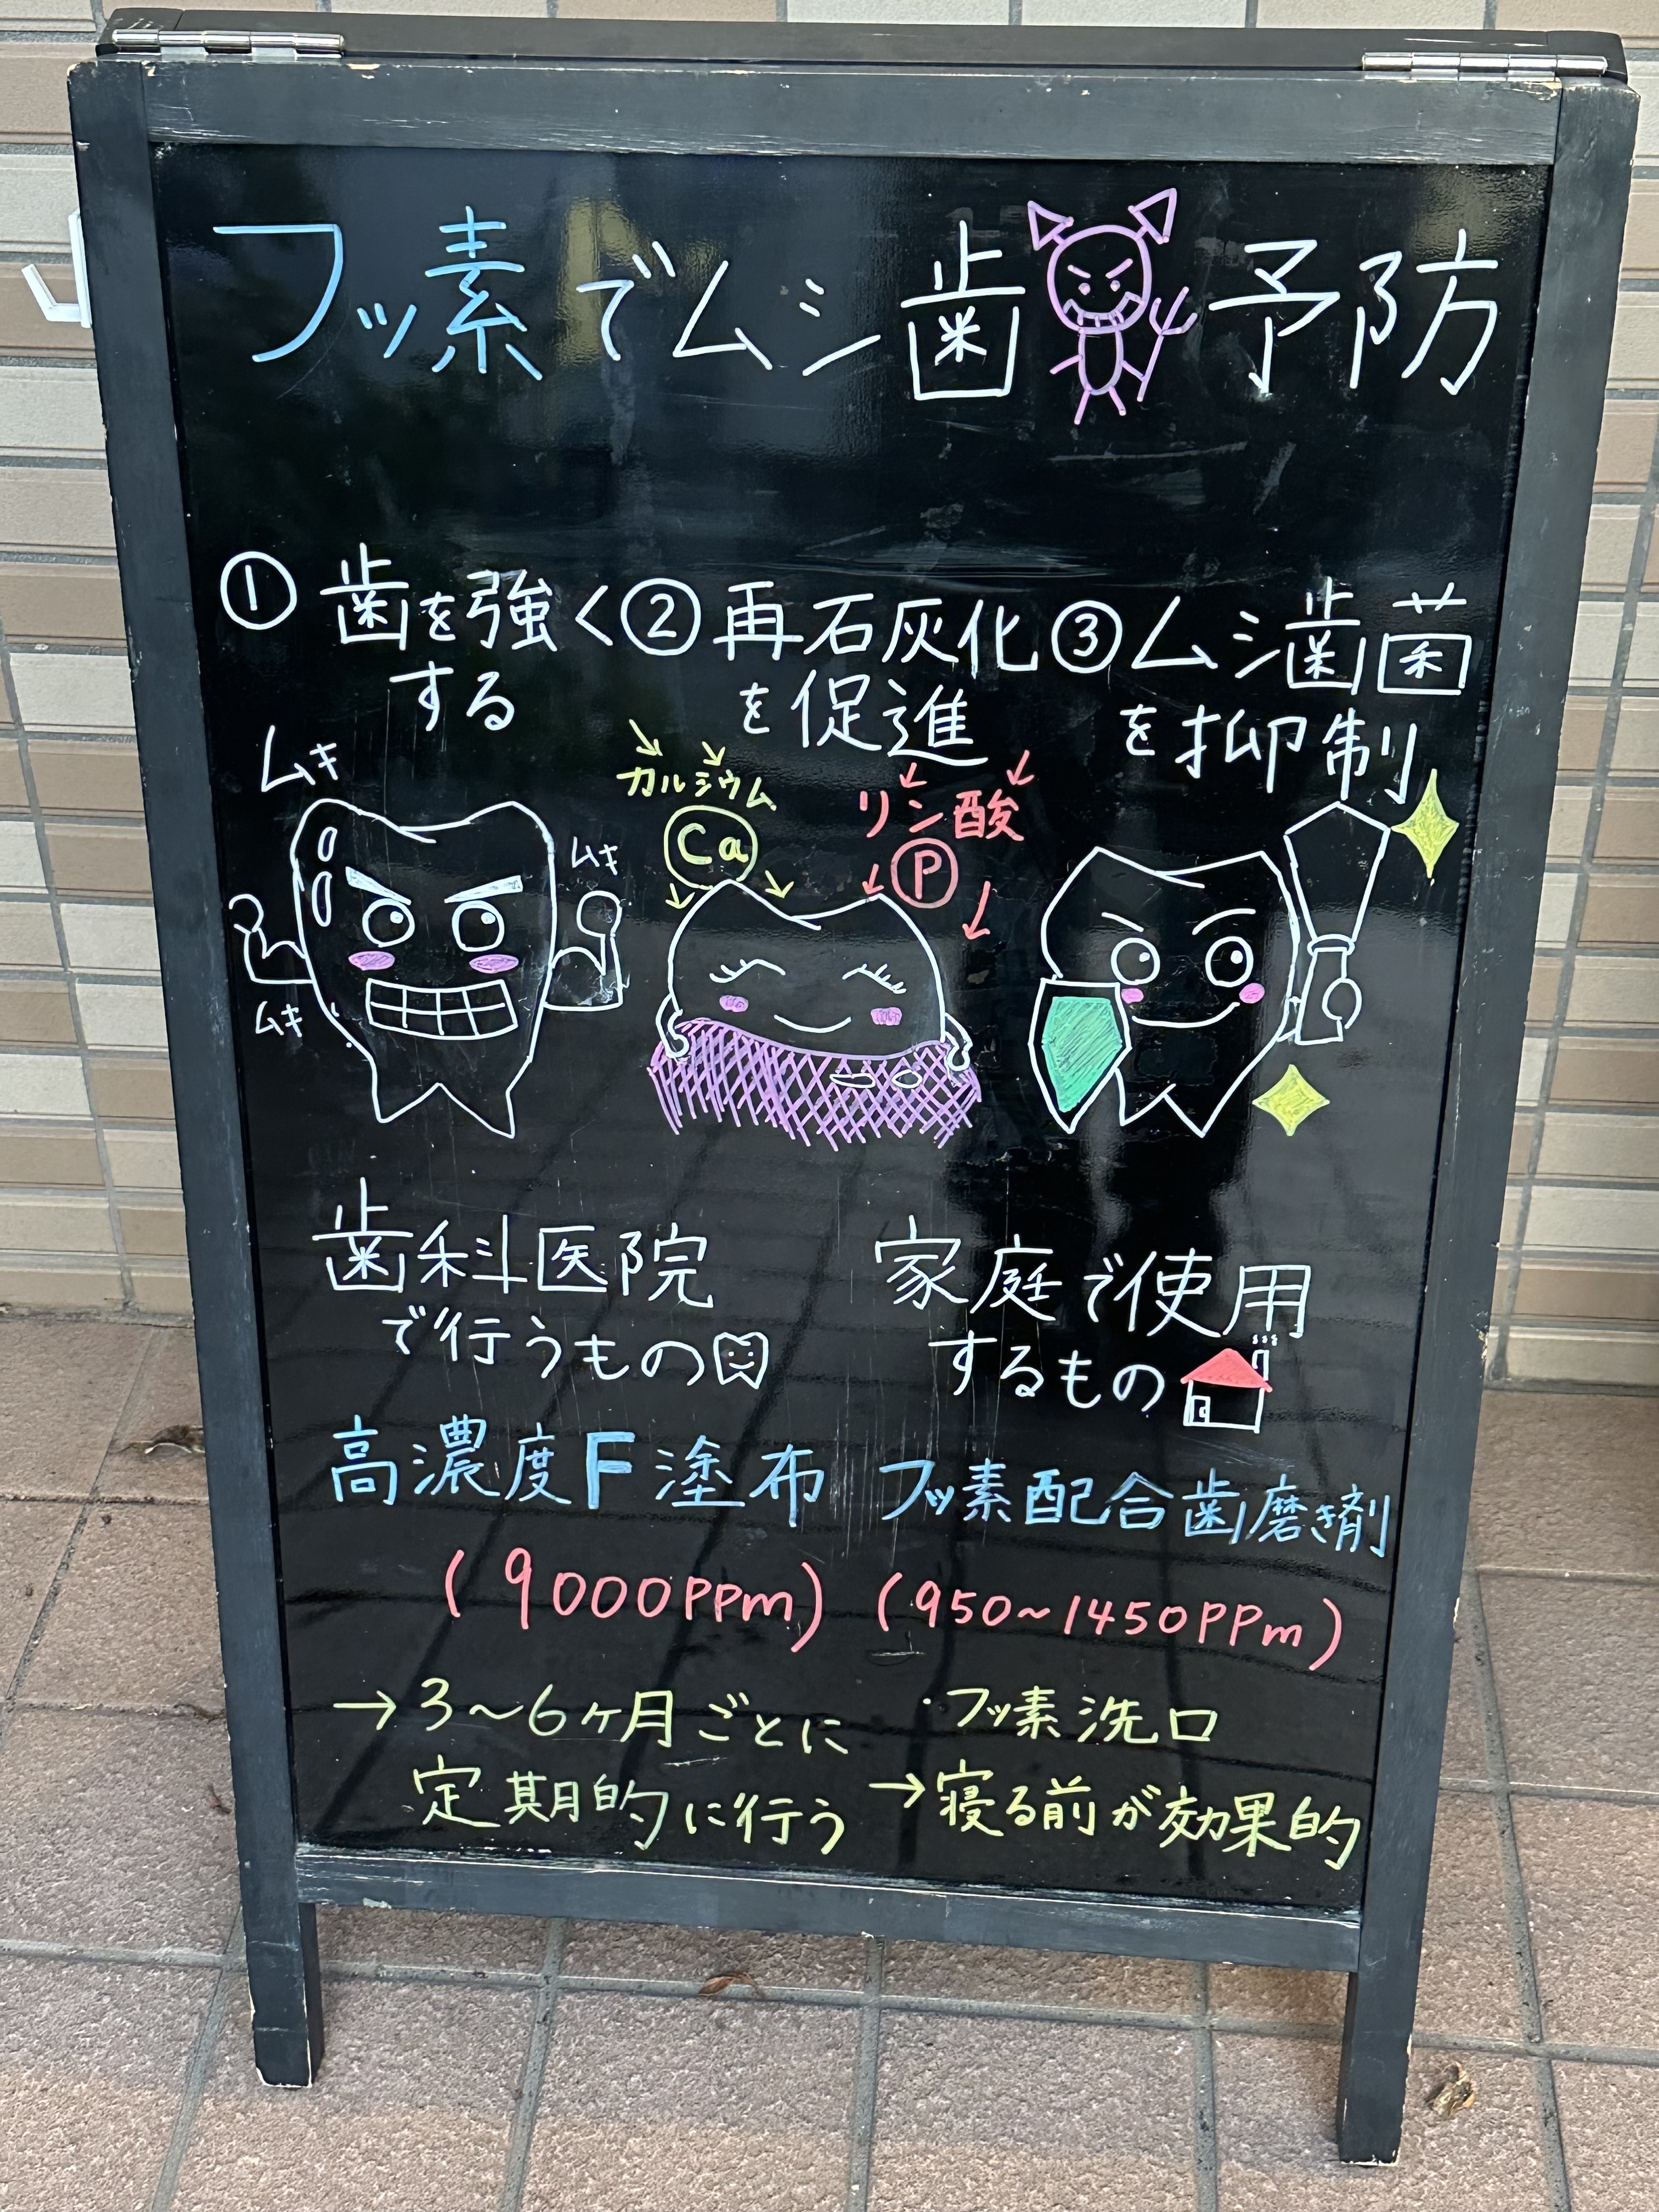 フッ素でムシ歯予防
① 歯を強く
する
② 再石灰化
を促進
③ ムシ歯菌
を抑制
ムキ
ムキ
ムキ
カルシウム
Ca
リン酸
P
歯科医院
で行うもの
高濃度F塗布
(9000ppm)
→3〜6ヶ月ごとに
定期的に行う
家庭で使用
するもの
フッ素配合歯磨き剤
(950~1450ppm)
・フッ素洗口
→寝る前が効果的